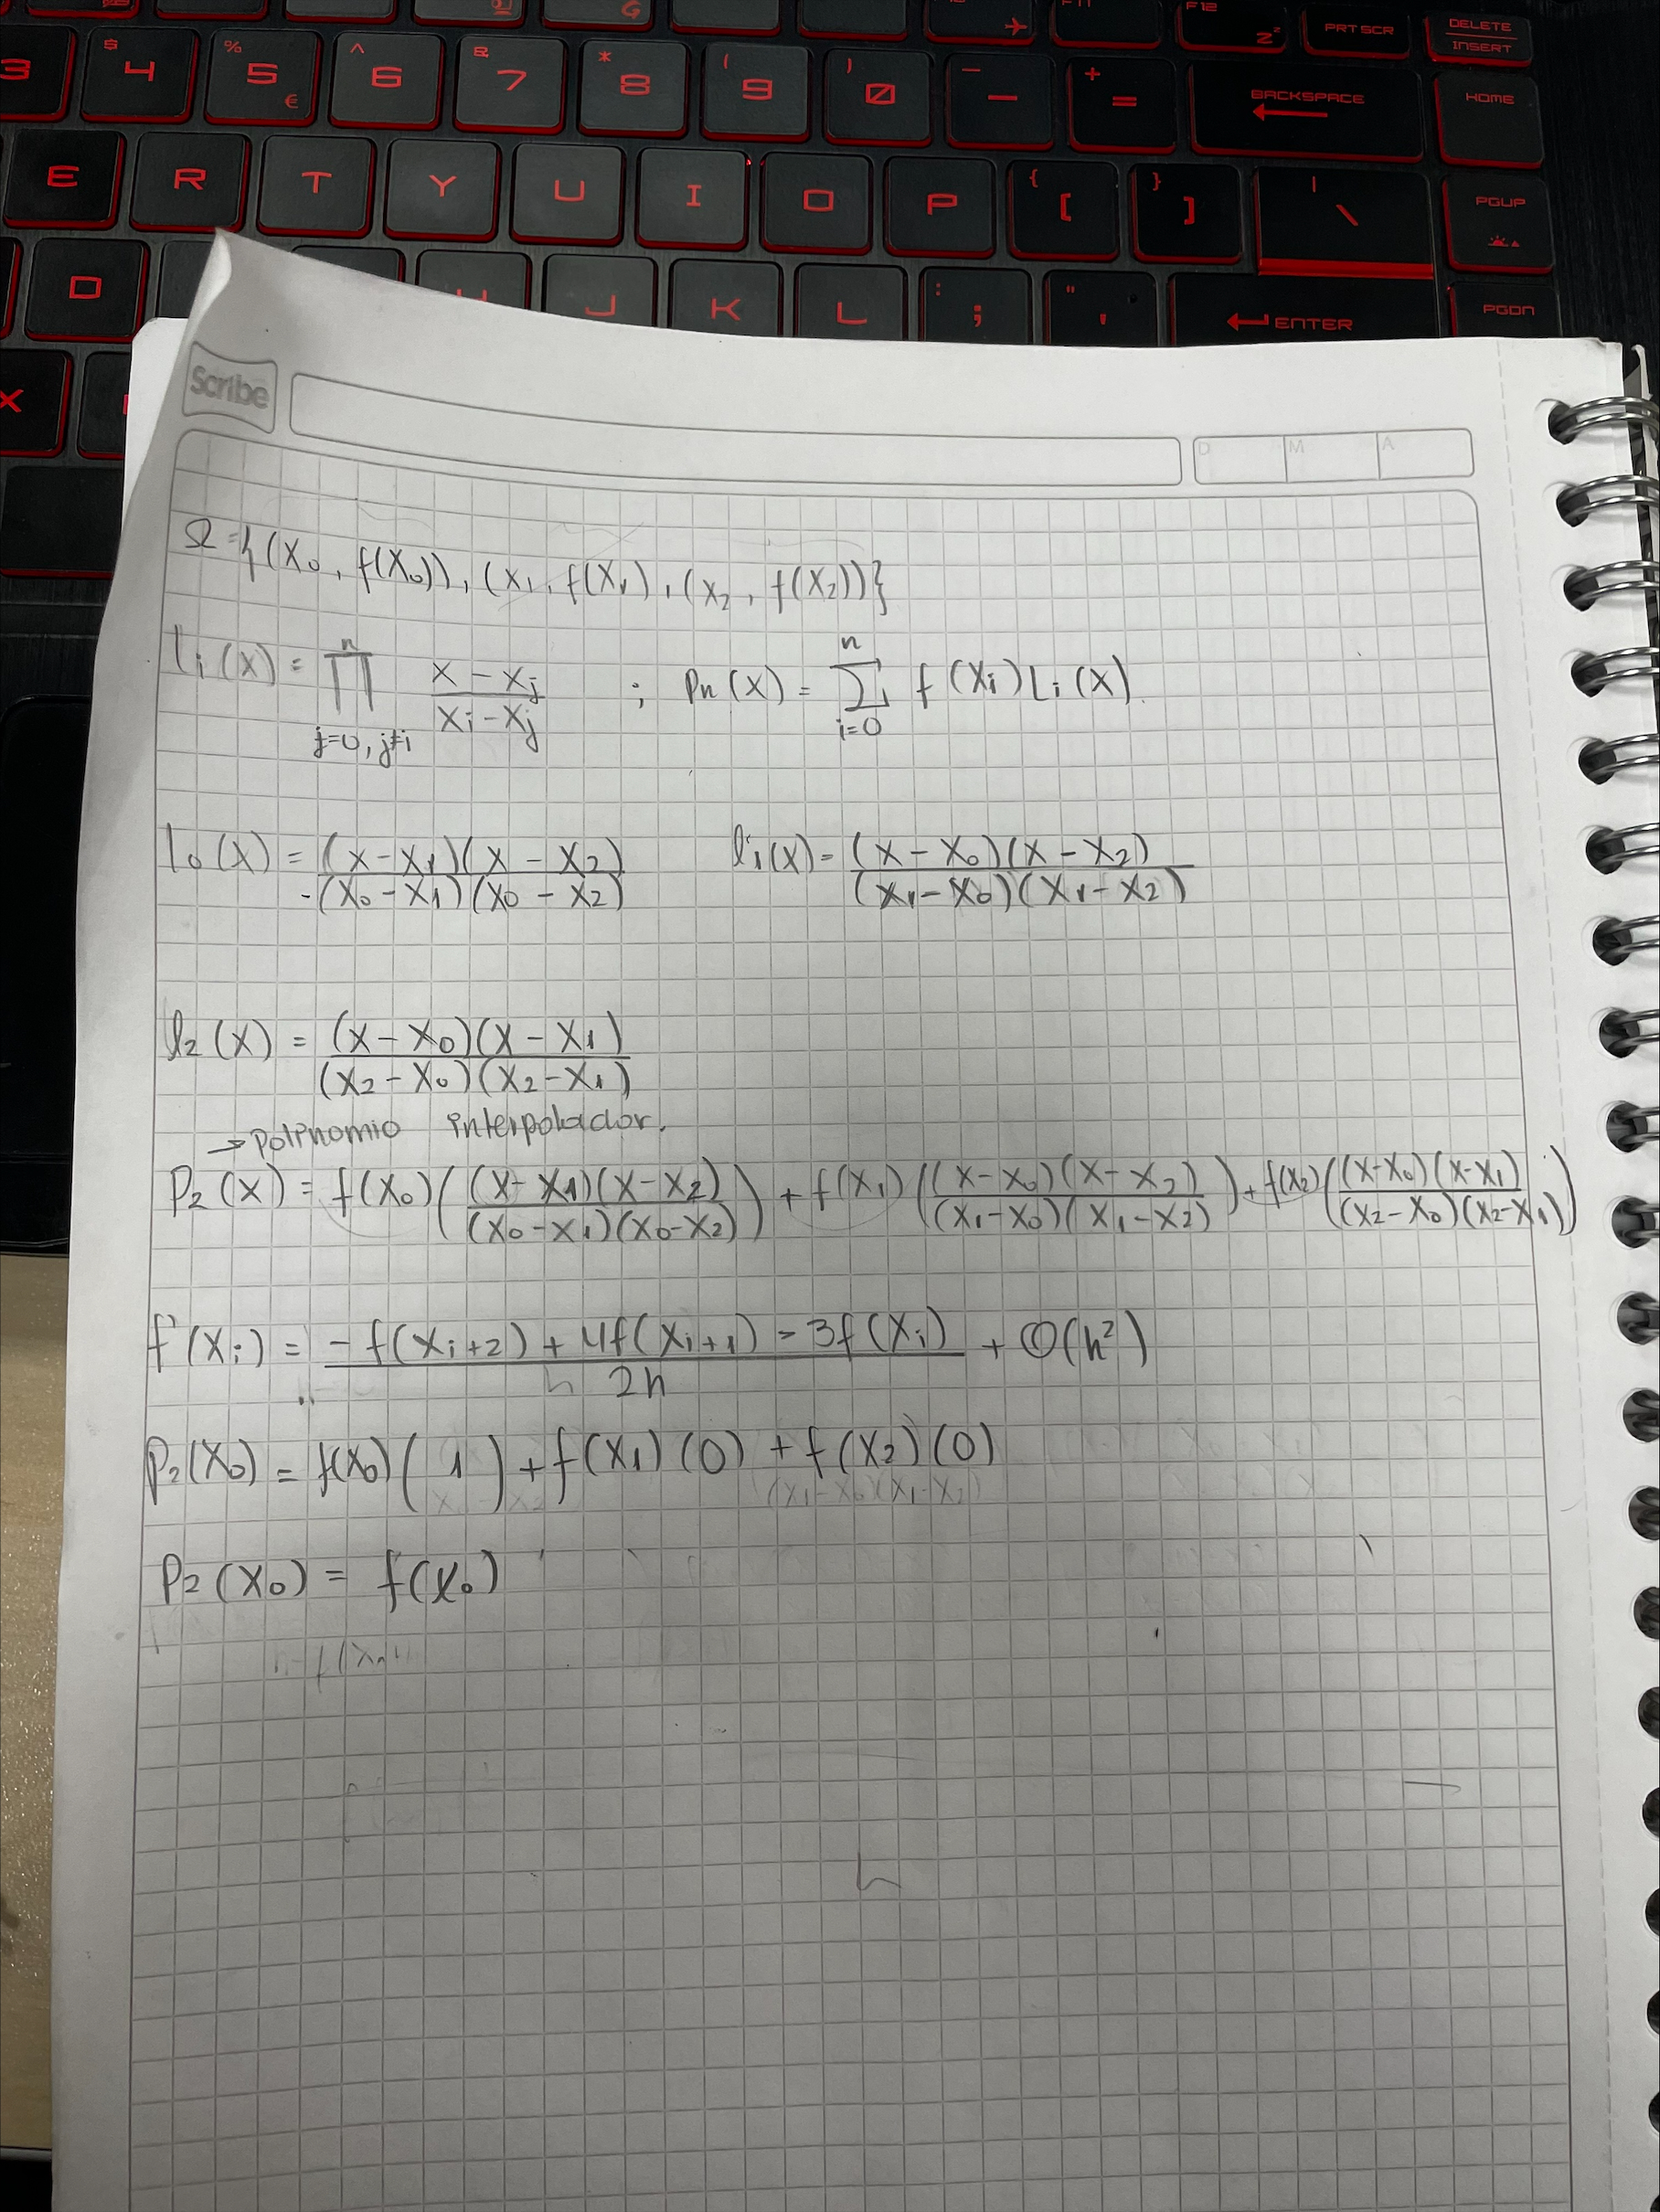 $ % ^ & * ( ) _ + F11 F12 PRT SCR DELETE
3 4 5 € 6 7 8 9 0 - = BACKSPACE INSERT HOME
E R T Y U I O P { [ } ] | \ PGUP
D J K L : ; " ' ENTER PGDN
X
Scribe
D M A
Ω = {(x₀, f(x₀)), (x₁, f(x₁), (x₂, f(x₂))}
lᵢ(x) = ∏ⁿ_{j=0, j≠i} (x - xⱼ)/(xᵢ - xⱼ) ; Pn(x) = ∑ⁿ_{i=0} f(xᵢ) Lᵢ(x).
l₀(x) = (x - x₁)(x - x₂)/(x₀ - x₁)(x₀ - x₂) l₁(x) = (x - x₀)(x - x₂)/(x₁ - x₀)(x₁ - x₂)
l₂(x) = (x - x₀)(x - x₁)/(x₂ - x₀)(x₂ - x₁)
→ Polinomio interpolador.
P₂(x) = f(x₀)((x - x₁)(x - x₂)/(x₀ - x₁)(x₀ - x₂)) + f(x₁)((x - x₀)(x - x₂)/(x₁ - x₀)(x₁ - x₂)) + f(x₂)((x - x₀)(x - x₁)/(x₂ - x₀)(x₂ - x₁))
f'(xᵢ) = (-f(xᵢ₊₂) + 4f(xᵢ₊₁) - 3f(xᵢ))/2h + O(h²)
P₂(x₀) = f(x₀)(1) + f(x₁)(0) + f(x₂)(0)
P₂(x₀) = f(x₀)